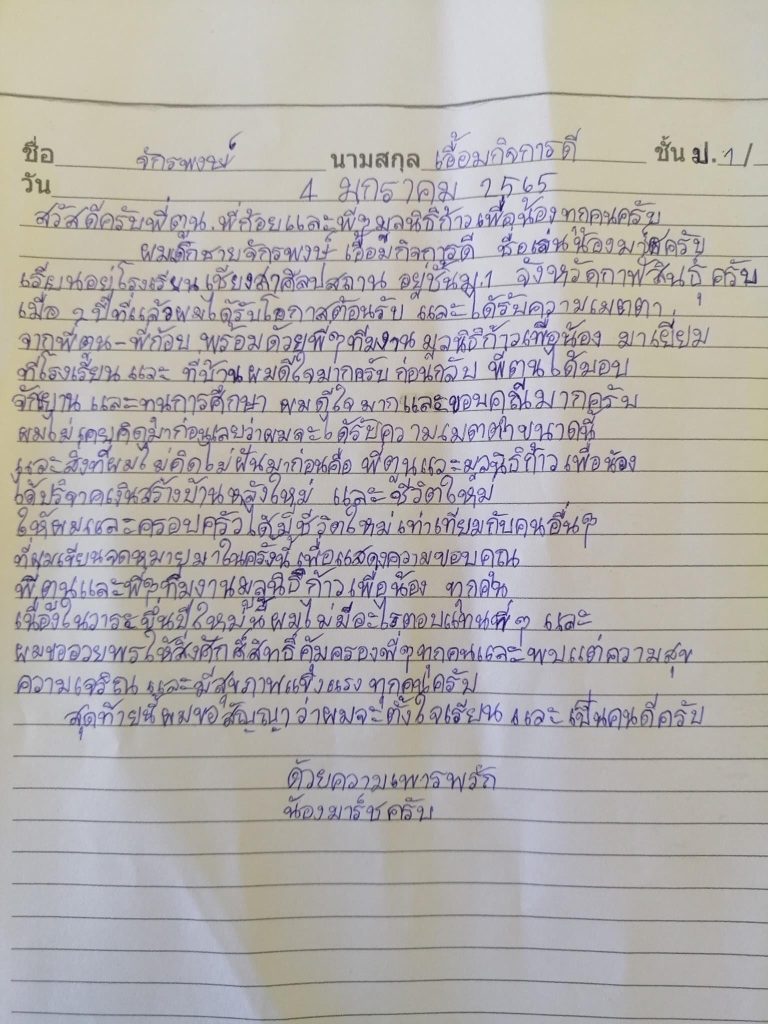 ชื่อ จักรพงษ์ นามสกุล เอื้อมกิจการดี ชั้น ป. 1/
วัน 4 มกราคม 2565
สวัสดีครับพี่ตูน, พี่ก้อยและพี่ๆมูลนิธิก้าวเพื่อน้องทุกคนครับ
ผมเด็กชายจักรพงษ์ เอื้อมกิจการดี ชื่อเล่นน้องมาร์ชครับ
เรียนอยู่โรงเรียน ศิลปสถาน อยู่ชั้นม.1 จังหวัดกาฬสินธุ์ ครับ
เมื่อ 2 ปีที่แล้วผมได้รับโอกาสต้อนรับ และได้รับความเมตตา
จากพี่ตูน-พี่ก้อย พร้อมด้วยพี่ๆทีมงานมูลนิธิก้าวเพื่อน้อง มาเยี่ยม
ที่โรงเรียน และ ที่บ้านผมดีใจมากครับ ก่อนกลับ พี่ตูนได้มอบ
จักยาน และทุนการศึกษา ผมดีใจมากและขอบคุณมากครับ
ผมไม่เคยคิดมาก่อนเลยว่าผมจะได้รับความเมตตาขนาดนี้
และสิ่งที่ผมไม่คิดไม่ฝันมาก่อนคือ พี่ตูนและมูลนิธิก้าวเพื่อน้อง
ได้บริจาคเงินสร้างบ้านหลังใหม่ และชีวิตใหม่
ให้ผมและครอบครัวได้มีชีวิตใหม่เท่าเทียมกับคนอื่นๆ
ที่ผมเขียนจดหมายมาในครั้งนี้ เพื่อแสดงความขอบคุณ
พี่ตูนและพี่ๆทีมงานมูลนิธิก้าวเพื่อน้อง ทุกคน
เนื่องในวาระขึ้นปีใหม่นี้ผมไม่มีอะไรตอบแทนพี่ๆ และ
ผมขออวยพรให้สิ่งศักสิ์สิทธิ์คุ้มครองพี่ๆทุกคนและพบแต่ความสุข
ความเจริญ และมีสุขภาพแข็งแรง ทุกคนครับ
สุดท้ายนี้ผมขอสัญญาว่าผมจะตั้งใจเรียน และเป็นคนดีครับ
ด้วยความเพารพรัก
น้องมาร์ชครับ